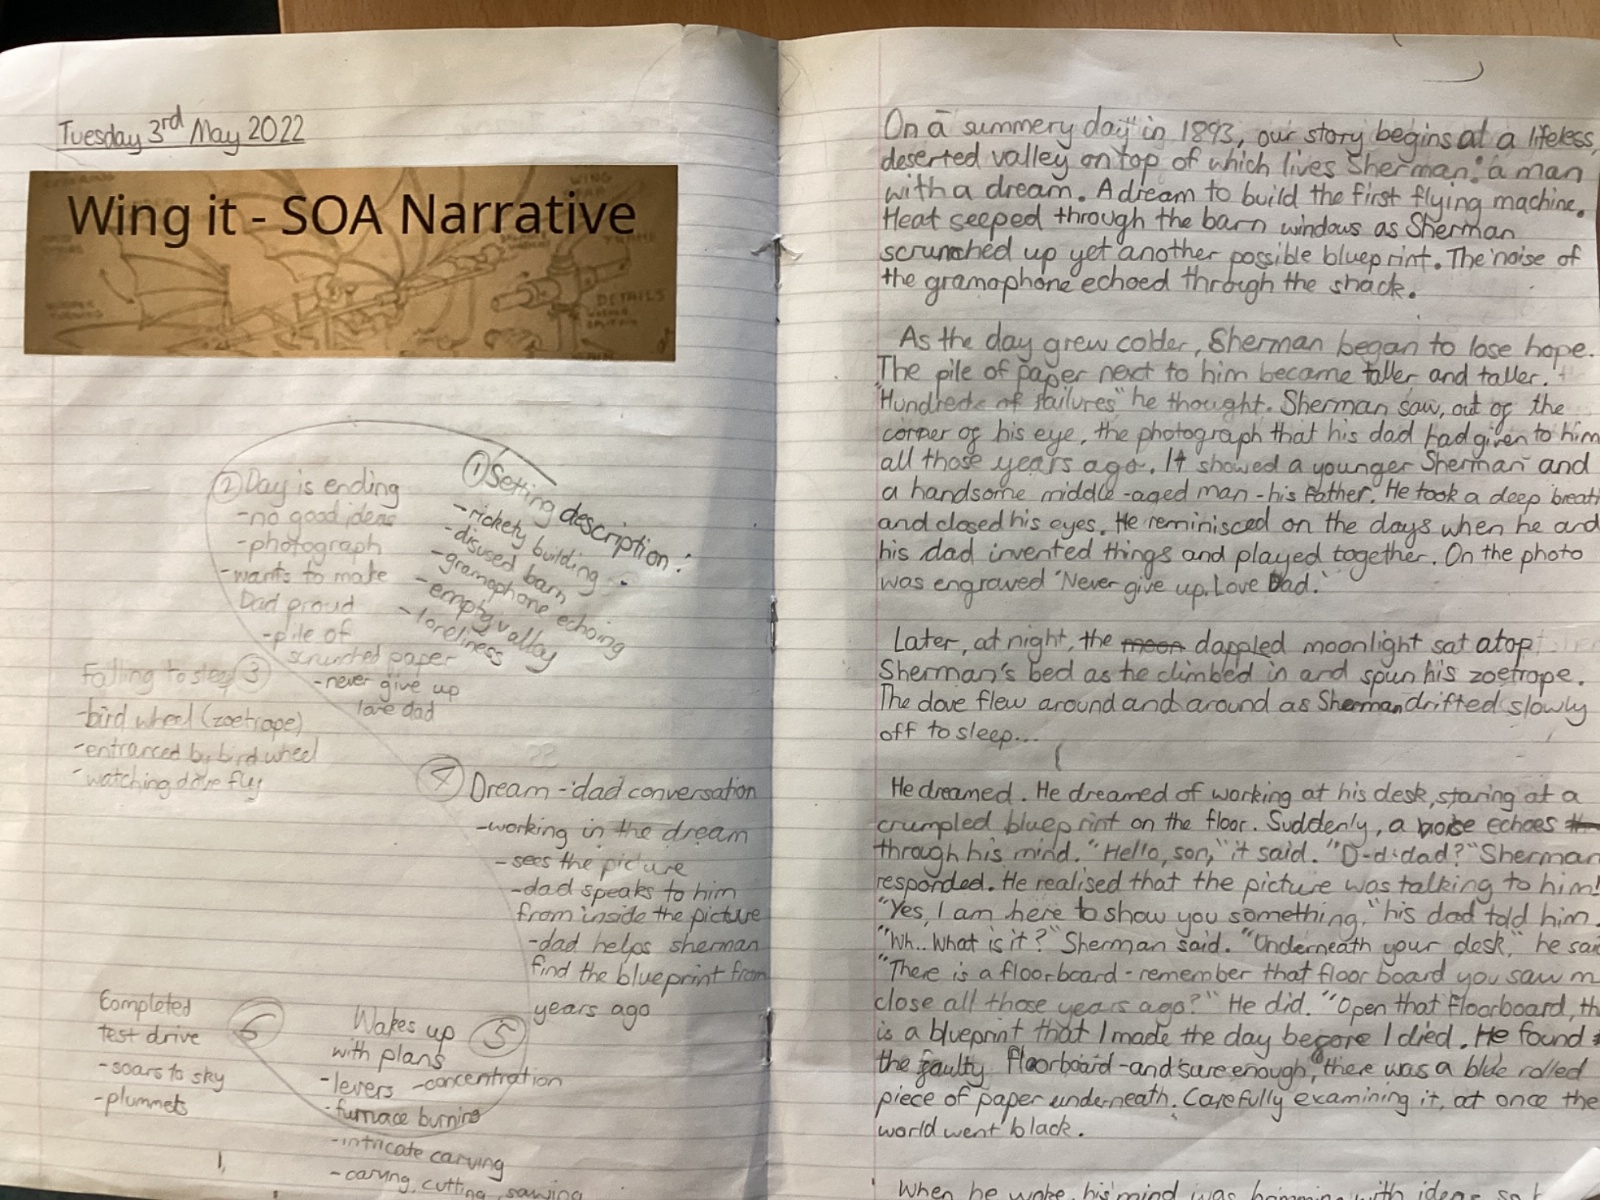 Tuesday 3rd May 2022
Wing it - SOA Narrative
WING
DETAILS
① Setting description:
- rickety building
- disused barn
- gramophone echoing
- empty valley
- loneliness
② Day is ending
- no good ideas
- photograph
- wants to make
Dad proud
- pile of
scrunched paper
- never give up
love dad
Falling to sleep ③
- bird wheel (zoetrope)
- entranced by bird wheel
- watching dove fly
④ Dream - dad conversation
- working in the dream
- sees the picture
- dad speaks to him
from inside the picture
- dad helps sherman
find the blueprint from
years ago
Wakes up ⑤
with plans
- levers - concentration
- furnace burning
- intricate carving
- carving, cutting, sawing
Completed ⑥
test drive
- soars to sky
- plummets
On a summery day in 1893, our story begins at a lifeless,
deserted valley on top of which lives Sherman: a man
with a dream. A dream to build the first flying machine.
Heat seeped through the barn windows as Sherman
scrunched up yet another possible blueprint. The noise of
the gramophone echoed through the shack.
As the day grew colder, Sherman began to lose hope.
The pile of paper next to him became taller and taller.
"Hundreds of failures" he thought. Sherman saw, out of the
corner of his eye, the photograph that his dad had given to him
all those years ago. It showed a younger Sherman and
a handsome middle-aged man - his father. He took a deep breath
and closed his eyes. He reminisced on the days when he and
his dad invented things and played together. On the photo
was engraved 'Never give up. Love Dad.'
Later, at night, the moon dappled moonlight sat atop
Sherman's bed as he climbed in and spun his zoetrope.
The dove flew around and around as Sherman drifted slowly
off to sleep...
He dreamed. He dreamed of working at his desk, staring at a
crumpled blueprint on the floor. Suddenly, a voice echoes
through his mind. "Hello, son," it said. "D-d-dad?" Sherman
responded. He realised that the picture was talking to him!
"Yes, I am here to show you something," his dad told him.
"Wh.. What is it?" Sherman said. "Underneath your desk," he sai
"There is a floorboard - remember that floor board you saw m
close all those years ago?" He did. "Open that floorboard, th
is a blueprint that I made the day before I died. He found
the faulty floorboard - and sure enough, there was a blue rolled
piece of paper underneath. Carefully examining it, at once the
world went black.
When he woke, his mind was
with ideas, so